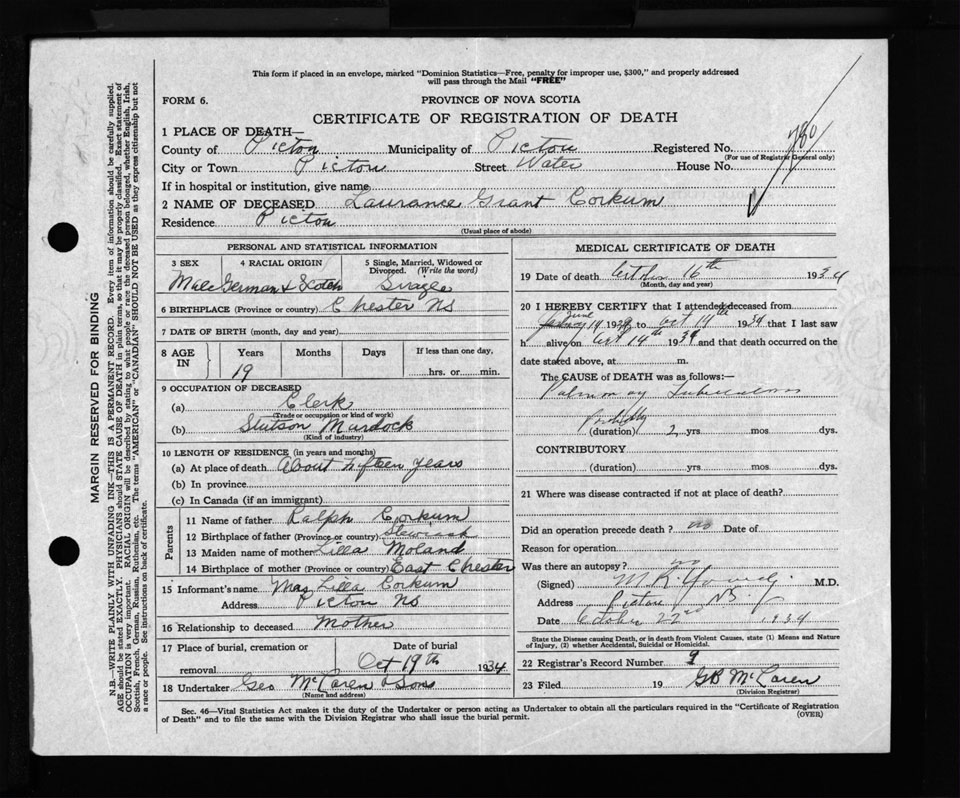 This form if placed in an envelope, marked "Dominion Statistics—Free, penalty for improper use, $300," and properly addressed
will pass through the Mail "FREE"
FORM 6.
PROVINCE OF NOVA SCOTIA
CERTIFICATE OF REGISTRATION OF DEATH
1 PLACE OF DEATH—
County of Picton Municipality of Picton Registered No. 780
(For use of Registrar General only)
City or Town Picton Street Water House No.
If in hospital or institution, give name
2 NAME OF DECEASED Laurance Grant Corkum
Residence Picton
(Usual place of abode)
PERSONAL AND STATISTICAL INFORMATION
3 SEX 4 RACIAL ORIGIN 5 Single, Married, Widowed or
Divorced. (Write the word)
Male German & Scotch Single
6 BIRTHPLACE (Province or country) Chester NS
7 DATE OF BIRTH (month, day and year)
8 AGE IN Years Months Days If less than one day,
19 hrs. or min.
9 OCCUPATION OF DECEASED
(a) Clerk
(Trade or occupation or kind of work)
(b) Stutson Murdock
(Kind of industry)
10 LENGTH OF RESIDENCE (in years and months)
(a) At place of death About fifteen years
(b) In province
(c) In Canada (if an immigrant)
Parents
11 Name of father Ralph Corkum
12 Birthplace of father (Province or country)
13 Maiden name of mother Lilla Moland
14 Birthplace of mother (Province or country) East Chester
15 Informant's name Mrs Lilla Corkum
Address Picton NS
16 Relationship to deceased Mother
17 Place of burial, cremation or Date of burial
removal Oct 19th 1934
18 Undertaker Geo McLaren & Sons
(Name and address)
MEDICAL CERTIFICATE OF DEATH
19 Date of death October 16th 1934
(Month, day and year)
20 I HEREBY CERTIFY that I attended deceased from
June 14 1934 to Oct 14th 1934 that I last saw
h alive on Oct 14th 1934 and that death occurred on the
date stated above, at m.
The CAUSE of DEATH was as follows:—
Pulmonary Tuberculosis
Probably
(duration) 2 yrs mos dys.
CONTRIBUTORY
(duration) yrs mos dys.
21 Where was disease contracted if not at place of death?
Did an operation precede death? no Date of
Reason for operation
Was there an autopsy? no
(Signed) M.R. Young M.D.
Address Picton N.S.
Date October 22nd 1934
State the Disease causing Death, or in death from Violent Causes, state (1) Means and Nature
of Injury, (2) whether Accidental, Suicidal or Homicidal.
22 Registrar's Record Number 9
23 Filed 19 GB McLaren
(Division Registrar)
Sec. 46—Vital Statistics Act makes it the duty of the Undertaker or person acting as Undertaker to obtain all the particulars required in the "Certificate of Registration
of Death" and to file the same with the Division Registrar who shall issue the burial permit.
(OVER)
MARGIN RESERVED FOR BINDING
N.B.—WRITE PLAINLY WITH UNFADING INK—THIS IS A PERMANENT RECORD. Every item of information should be carefully supplied.
AGE should be stated EXACTLY. PHYSICIANS should STATE CAUSE OF DEATH in plain terms, so that it may be properly classified. Exact statement of
OCCUPATION is very important. RACIAL ORIGIN will be described by stating to what people or race the deceased person belonged, whether English, Irish,
Scottish, French, German, Russian, Ruthenian, etc. The terms "AMERICAN" or "CANADIAN" SHOULD NOT BE USED as they express citizenship but not
a race or people. See instructions on back of certificate.